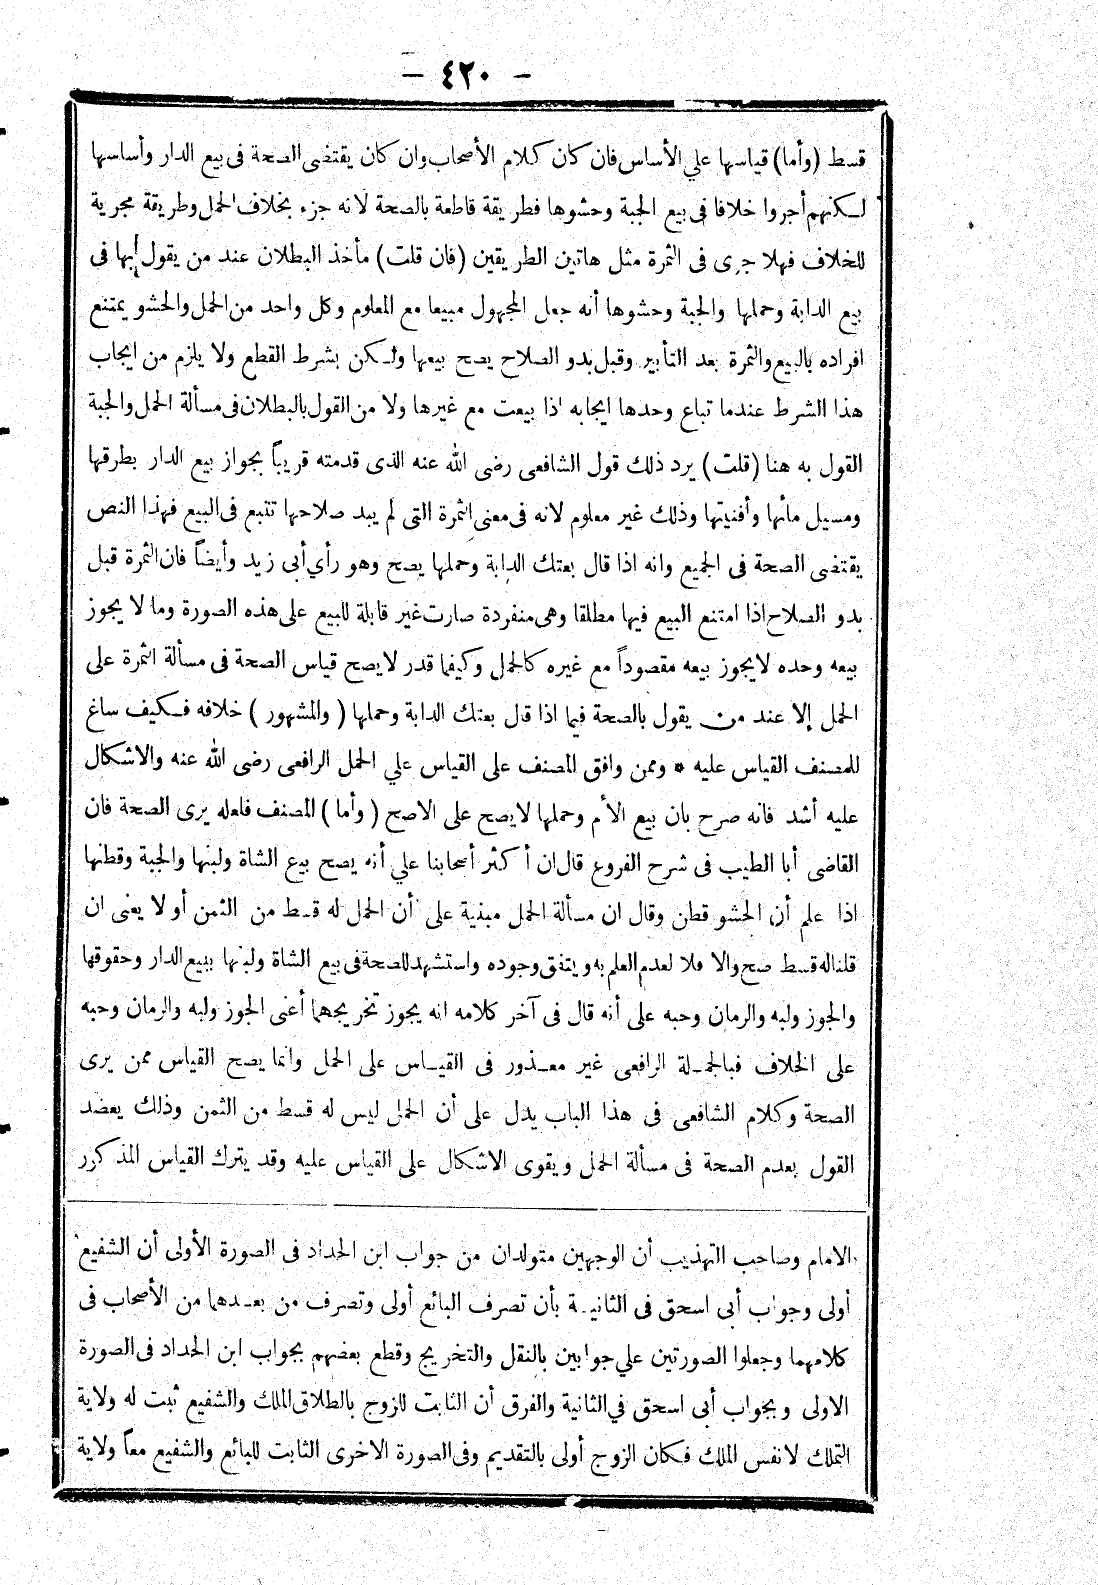 - ٤٢٠ -
قسط (وأما) قياسها علي الأساس فان كان كلام الأصحاب وان كان يقتضى الصحة فى بيع الدار وأساسها
لكنهم أجروا خلافا فى بيع الجبة وحشوها فطريقة قاطعة بالصحة لانه جزء بخلاف الحمل وطريقة مجرية
للخلاف فهلا جرى فى الثمرة مثل هاتين الطريقين (فان قلت) مأخذ البطلان عند من يقول بها فى
بيع الدابة وحملها والجبة وحشوها أنه جعل المجهول مبيعا مع المعلوم وكل واحد من الحمل والحشو يمتنع
افراده بالبيع والثمرة بعد التأبير وقبل بدو الصلاح يصح بيعها ولكن بشرط القطع ولا يلزم من ايجاب
هذا الشرط عندما تباع وحدها ايجابه اذا بيعت مع غيرها ولا من القول بالبطلان فى مسألة الحمل والجبة
القول به هنا (قلت) يرد ذلك قول الشافعى رضى الله عنه الذى قدمته قريباً بجواز بيع الدار بطرقها
ومسيل مائها وأفنيتها وذلك غير معلوم لانه فى معنى الثمرة التى لم يبد صلاحها تتبع فى البيع فهذا النص
يقتضى الصحة فى الجميع وانه اذا قال بعتك الدابة وحملها يصح وهو رأي أبى زيد وأيضاً فان الثمرة قبل
بدو الصلاح اذا امتنع البيع فيها مطلقا وهى منفردة صارت غير قابلة للبيع على هذه الصورة وما لا يجوز
بيعه وحده لايجوز بيعه مقصوداً مع غيره كالحمل وكيفما قدر لايصح قياس الصحة فى مسألة الثمرة على
الحمل إلا عند من يقول بالصحة فيما اذا قال بعتك الدابة وحملها (والمشهور) خلافه فكيف ساغ
للمصنف القياس عليه * وممن وافق المصنف على القياس علي الحمل الرافعى رضى الله عنه والاشكال
عليه أشد فانه صرح بان بيع الأم وحملها لايصح على الاصح (وأما) المصنف فلعله يرى الصحة فان
القاضى أبا الطيب فى شرح الفروع قال ان أكثر أصحابنا علي أنه يصح بيع الشاة ولبنها والجبة وقطنها
اذا علم أن الحشو قطن وقال ان مسألة الحمل مبنية على أن الحمل له قسط من الثمن أو لا يعنى ان
قلنا له قسط صح والا فلا لعدم العلم به ويتفق وجوده واستشهد للصحة فى بيع الشاة ولبنها ببيع الدار وحقوقها
والجوز ولبه والرمان وحبه على أنه قال فى آخر كلامه انه يجوز تخريجهما أعنى الجوز ولبه والرمان وحبه
على الخلاف فبالجملة الرافعى غير معذور فى القياس على الحمل وانما يصح القياس ممن يرى
الصحة وكلام الشافعى فى هذا الباب يدل على أن الحمل ليس له قسط من الثمن وذلك يعضد
القول بعدم الصحة فى مسألة الحمل ويقوى الاشكال على القياس عليه وقد يترك القياس المذكور
الامام وصاحب التهذيب أن الوجهين متولدان من جواب ابن الحداد فى الصورة الأولى أن الشفيع
أولى وجواب أبى اسحق فى الثانية بأن تصرف البائع أولى وتصرف من بعدهما من الأصحاب فى
كلامهما وجعلوا الصورتين علي جوابين بالنقل والتخريج وقطع بعضهم بجواب ابن الحداد فى الصورة
الاولى وبجواب أبى اسحق في الثانية والفرق أن الثابت للزوج بالطلاق الملك والشفيع ثبت له ولاية
التملك لا نفس الملك فكان الزوج أولى بالتقديم وفى الصورة الاخرى الثابت للبائع والشفيع معاً ولاية